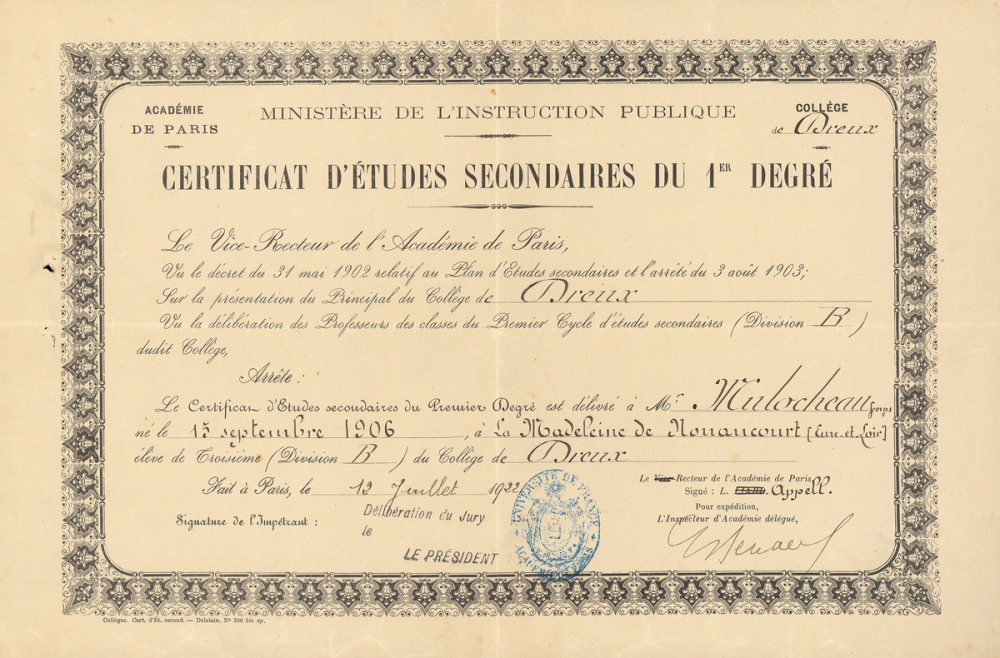 ACADÉMIE
DE PARIS
MINISTÈRE DE L'INSTRUCTION PUBLIQUE
COLLÈGE
de Dreux
CERTIFICAT D'ÉTUDES SECONDAIRES DU 1ER DEGRÉ
Le Vice-Recteur de l'Académie de Paris,
Vu le décret du 31 mai 1902 relatif au Plan d'Études secondaires et l'arrêté du 3 août 1903;
Sur la présentation du Principal du Collège de Dreux
Vu la délibération des Professeurs des classes du Premier Cycle d'études secondaires (Division B)
dudit Collège,
Arrête:
Le Certificat d'Études secondaires du Premier Degré est délivré à Mr Mulocheau Georges
né le 15 septembre 1906, à La Madeleine de Nonancourt [Eure-et-Loir]
élève de Troisième (Division B) du Collège de Dreux
Fait à Paris, le 12 Juillet 1922
Le Vice-Recteur de l'Académie de Paris,
Signé: L. Appell.
Pour expédition,
L'Inspecteur d'Académie délégué,
Signature de l'Impétrant:
Délibération du Jury
le
LE PRÉSIDENT
UNIVERSITÉ DE FRANCE
ACADÉMIE DE PARIS
Collèges. Cert. d'Ét. second. — Delalain. N° 300 bis sp.